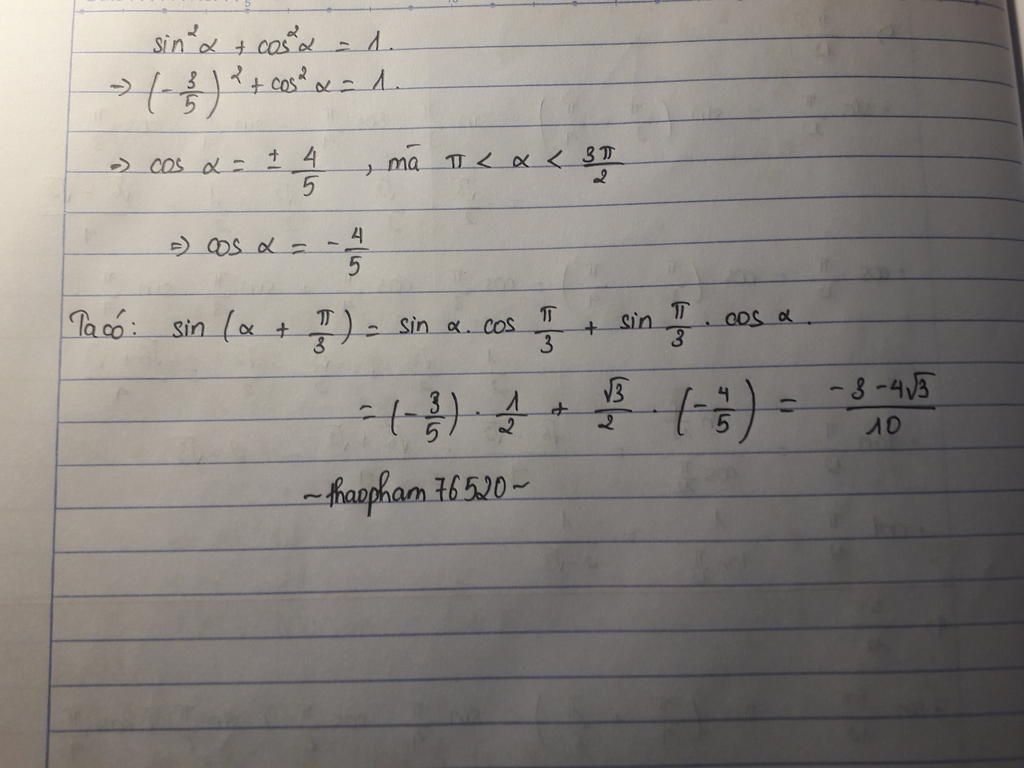 sin²α + cos²α = 1.
⇒ (-3/5)² + cos²α = 1.
⇒ cos α = ± 4/5 , mà π < α < 3π/2
⇒ cos α = - 4/5
Ta có: sin (α + π/3) = sin α. cos π/3 + sin π/3 . cos α.
= (-3/5) . 1/2 + √3/2 . (-4/5) = -3-4√3/10
~thaopham76520~